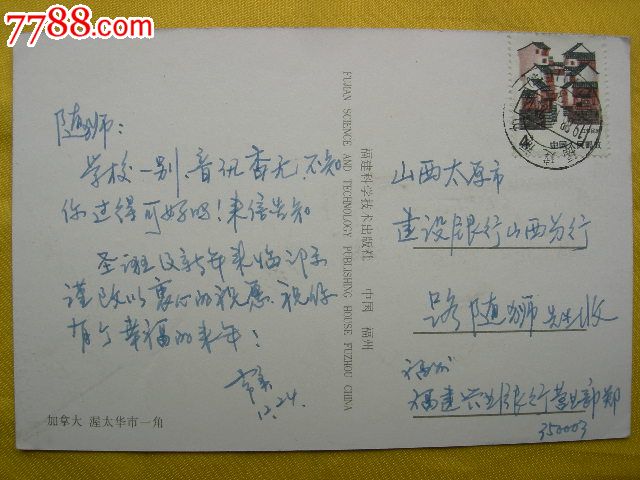 7788.com
随狮：
学校一别音讯杳无，不知
你过得可好吗！来信告知
圣诞及新年来临之际
谨致以衷心的祝愿，祝你
有个幸福的来年！
12.24
加拿大 渥太华市一角
FUJIAN SCIENCE AND TECHNOLOGY PUBLISHING HOUSE FUZHOU CHINA
福建科学技术出版社 中国 福州
中国人民邮政
山西太原市
建设银行山西分行
路随狮先生收
福州
福建兴业银行营业部郑
350003